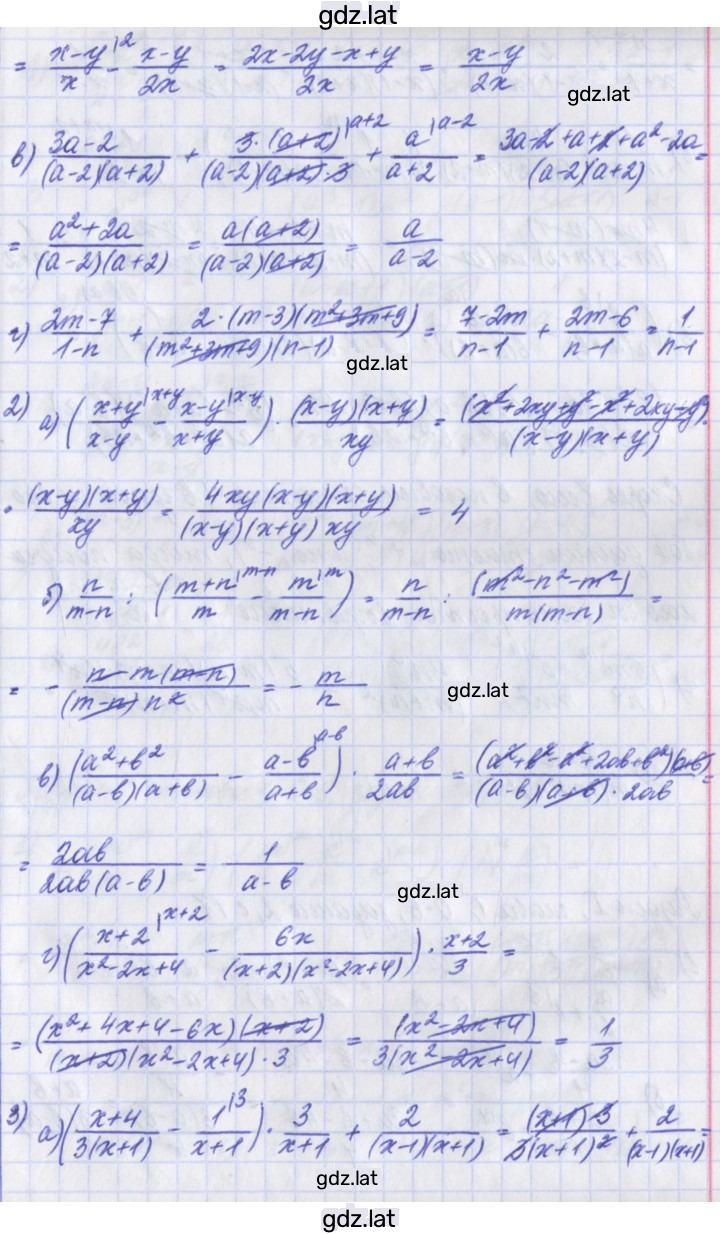 gdz.lat
= (x-y)/x |2 - (x-y)/2x = (2x-2y-x+y)/2x = (x-y)/2x
gdz.lat
в) (3a-2)/((a-2)(a+2)) + (3·(a+2))/((a-2)(a+2)·3) |a+2 + a/(a+2) |a-2 = (3a-2+a+2+a²-2a)/((a-2)(a+2)) =
= (a²+2a)/((a-2)(a+2)) = (a(a+2))/((a-2)(a+2)) = a/(a-2)
г) (2m-7)/(1-n) + (2·(m-3)(m²+3m+9))/((m²+3m+9)(n-1)) = (7-2m)/(n-1) + (2m-6)/(n-1) = 1/(n-1)
gdz.lat
2) а) ((x+y)/(x-y) |x+y - (x-y)/(x+y) |x-y) · ((x-y)(x+y))/xy = (x²+2xy+y²-x²+2xy-y²)/((x-y)(x+y)) ·
· ((x-y)(x+y))/xy = (4xy(x-y)(x+y))/((x-y)(x+y)xy) = 4
б) n/(m-n) : ((m+n)/m |m-n - m/(m-n) |m) = n/(m-n) : (m²-n²-m²)/(m(m-n)) =
= - (n·m(m-n))/((m-n)n²) = - m/n
gdz.lat
в) ((a²+b²)/((a-b)(a+b)) - (a-b)/(a+b) |a-b) · (a+b)/2ab = ((a²+b²-a²+2ab+b²)(a+b))/((a-b)(a+b)·2ab) =
= 2ab/(2ab(a-b)) = 1/(a-b)
gdz.lat
г) ((x+2)/(x²-2x+4) |x+2 - 6x/((x+2)(x²-2x+4))) · (x+2)/3 =
= ((x²+4x+4-6x)(x+2))/((x+2)(x²-2x+4)·3) = (x²-2x+4)/(3(x²-2x+4)) = 1/3
3) а) ((x+4)/(3(x+1)) - 1/(x+1) |3) · 3/(x+1) + 2/((x-1)(x+1)) = ((x+1)·3)/(3(x+1)²) + 2/((x-1)(x+1)) =
gdz.lat
gdz.lat